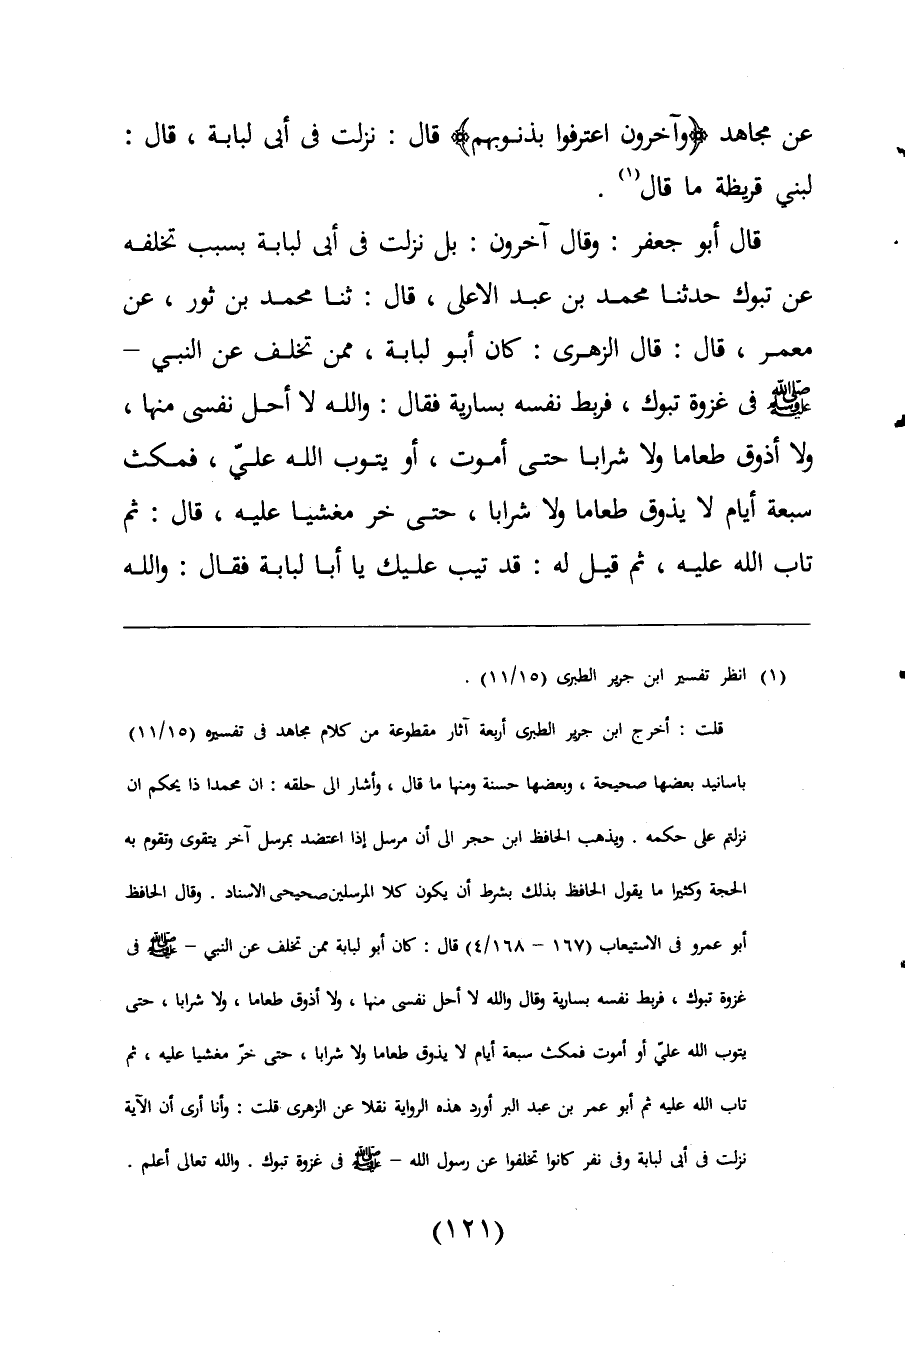 عن مجاهد ﴿وآخرون اعترفوا بذنوبهم﴾ قال : نزلت فى أبى لبابة ، قال :
لبني قريظة ما قال(١) .
قال أبو جعفر : وقال آخرون : بل نزلت فى أبى لبابة بسبب تخلفه
عن تبوك حدثنا محمد بن عبد الاعلى ، قال : ثنا محمد بن ثور ، عن
معمر ، قال : قال الزهرى : كان أبو لبابة ، ممن تخلف عن النبي –
ﷺ فى غزوة تبوك ، فربط نفسه بسارية فقال : والله لا أحل نفسى منها ،
ولا أذوق طعاما ولا شرابا حتى أموت ، أو يتوب الله عليّ ، فمكث
سبعة أيام لا يذوق طعاما ولا شرابا ، حتى خر مغشيا عليه ، قال : ثم
تاب الله عليه ، ثم قيل له : قد تيب عليك يا أبا لبابة فقال : والله
(١) انظر تفسير ابن جرير الطبرى (١١/١٥) .
قلت : أخرج ابن جرير الطبرى أربعة آثار مقطوعة من كلام مجاهد فى تفسيره (١١/١٥)
باسانيد بعضها صحيحة ، وبعضها حسنة ومنها ما قال ، وأشار الى حلقه : ان محمدا ذا يحكم ان
نزلتم على حكمه . ويذهب الحافظ ابن حجر الى أن مرسل إذا اعتضد بمرسل آخر يتقوى وتقوم به
الحجة وكثيرا ما يقول الحافظ بذلك بشرط أن يكون كلا المرسلين صحيحى الاسناد . وقال الحافظ
أبو عمرو فى الاستيعاب (١٦٧ – ٤/١٦٨) قال : كان أبو لبابة ممن تخلف عن النبي – ﷺ فى
غزوة تبوك ، فربط نفسه بسارية وقال والله لا أحل نفسى منها ، ولا أذوق طعاما ، ولا شرابا ، حتى
يتوب الله عليّ أو أموت فمكث سبعة أيام لا يذوق طعاما ولا شرابا ، حتى خرّ مغشيا عليه ، ثم
تاب الله عليه ثم أبو عمر بن عبد البر أورد هذه الرواية نقلا عن الزهرى قلت : وأنا أرى أن الآية
نزلت فى أبى لبابة وفى نفر كانوا تخلفوا عن رسول الله – ﷺ فى غزوة تبوك . والله تعالى أعلم .
(١٢١)